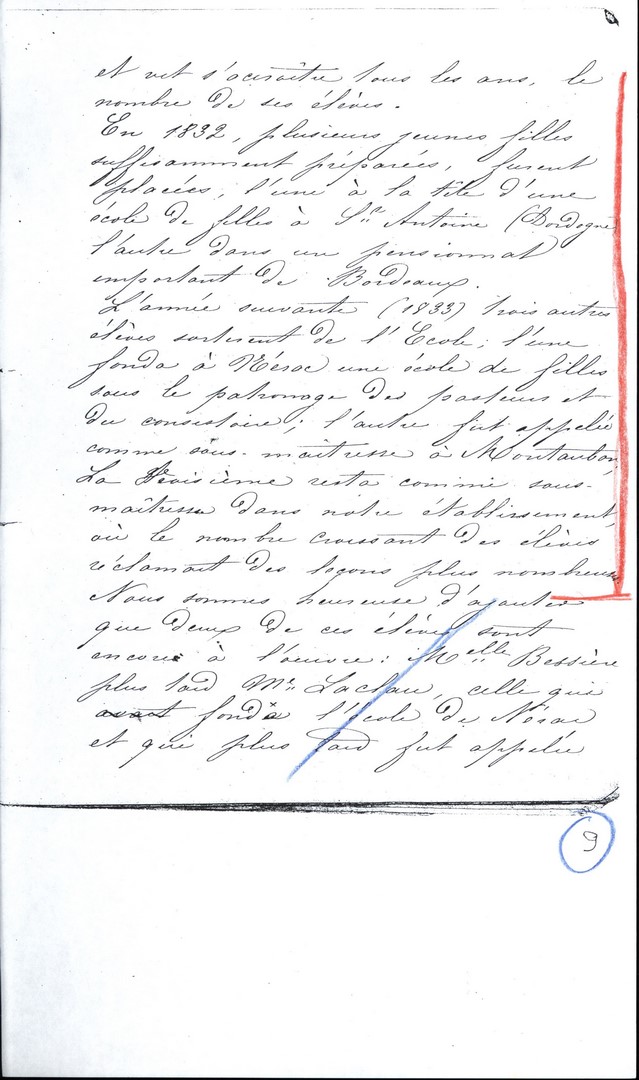 et vit s'accroître tous les ans, le
nombre de ses élèves.
En 1832, plusieurs jeunes filles
suffisamment préparées, furent
placées, l'une à la tête d'une
école de filles à St Antoine (Dordogne
l'autre dans un pensionnat
important de Bordeaux.
L'année suivante (1833) trois autres
élèves sortirent de l'Ecole; l'une
fonda à Nérac une école de filles
sous le patronage des pasteurs et
du consistoire; l'autre fut appelée
comme sous-maîtresse à Montauban;
La troisième resta comme sous-
maîtresse dans notre établissement,
où le nombre croissant des élèves
réclamait des leçons plus nombreuses
Nous sommes heureuse d'ajouter
que deux de ces élèves sont
encore à l'oeuvre: Melle Bessière
plus tard Me Laclau, celle qui
avait fonda l'école de Nérac
et qui plus tard fut appelée
9